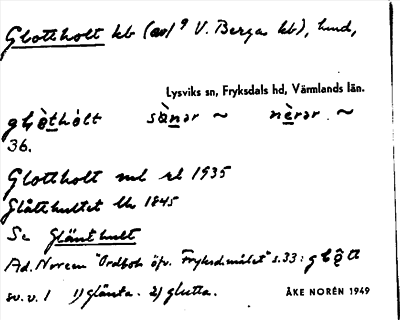 Glottholt hb (av 9 V. Berga hb), hmd,
Lysviks sn, Fryksdals hd, Värmlands län.
sànər ~ nèrər ~
36.
Glottholt ml rl 1935
Glåtthultet Uk 1845
Se Glänthult
Ad. Noreen "Ordbok öfv. Fryksd.målet" s.33:
sv. v. 1 1) glänta. 2) glutta. ÅKE NORÉN 1949